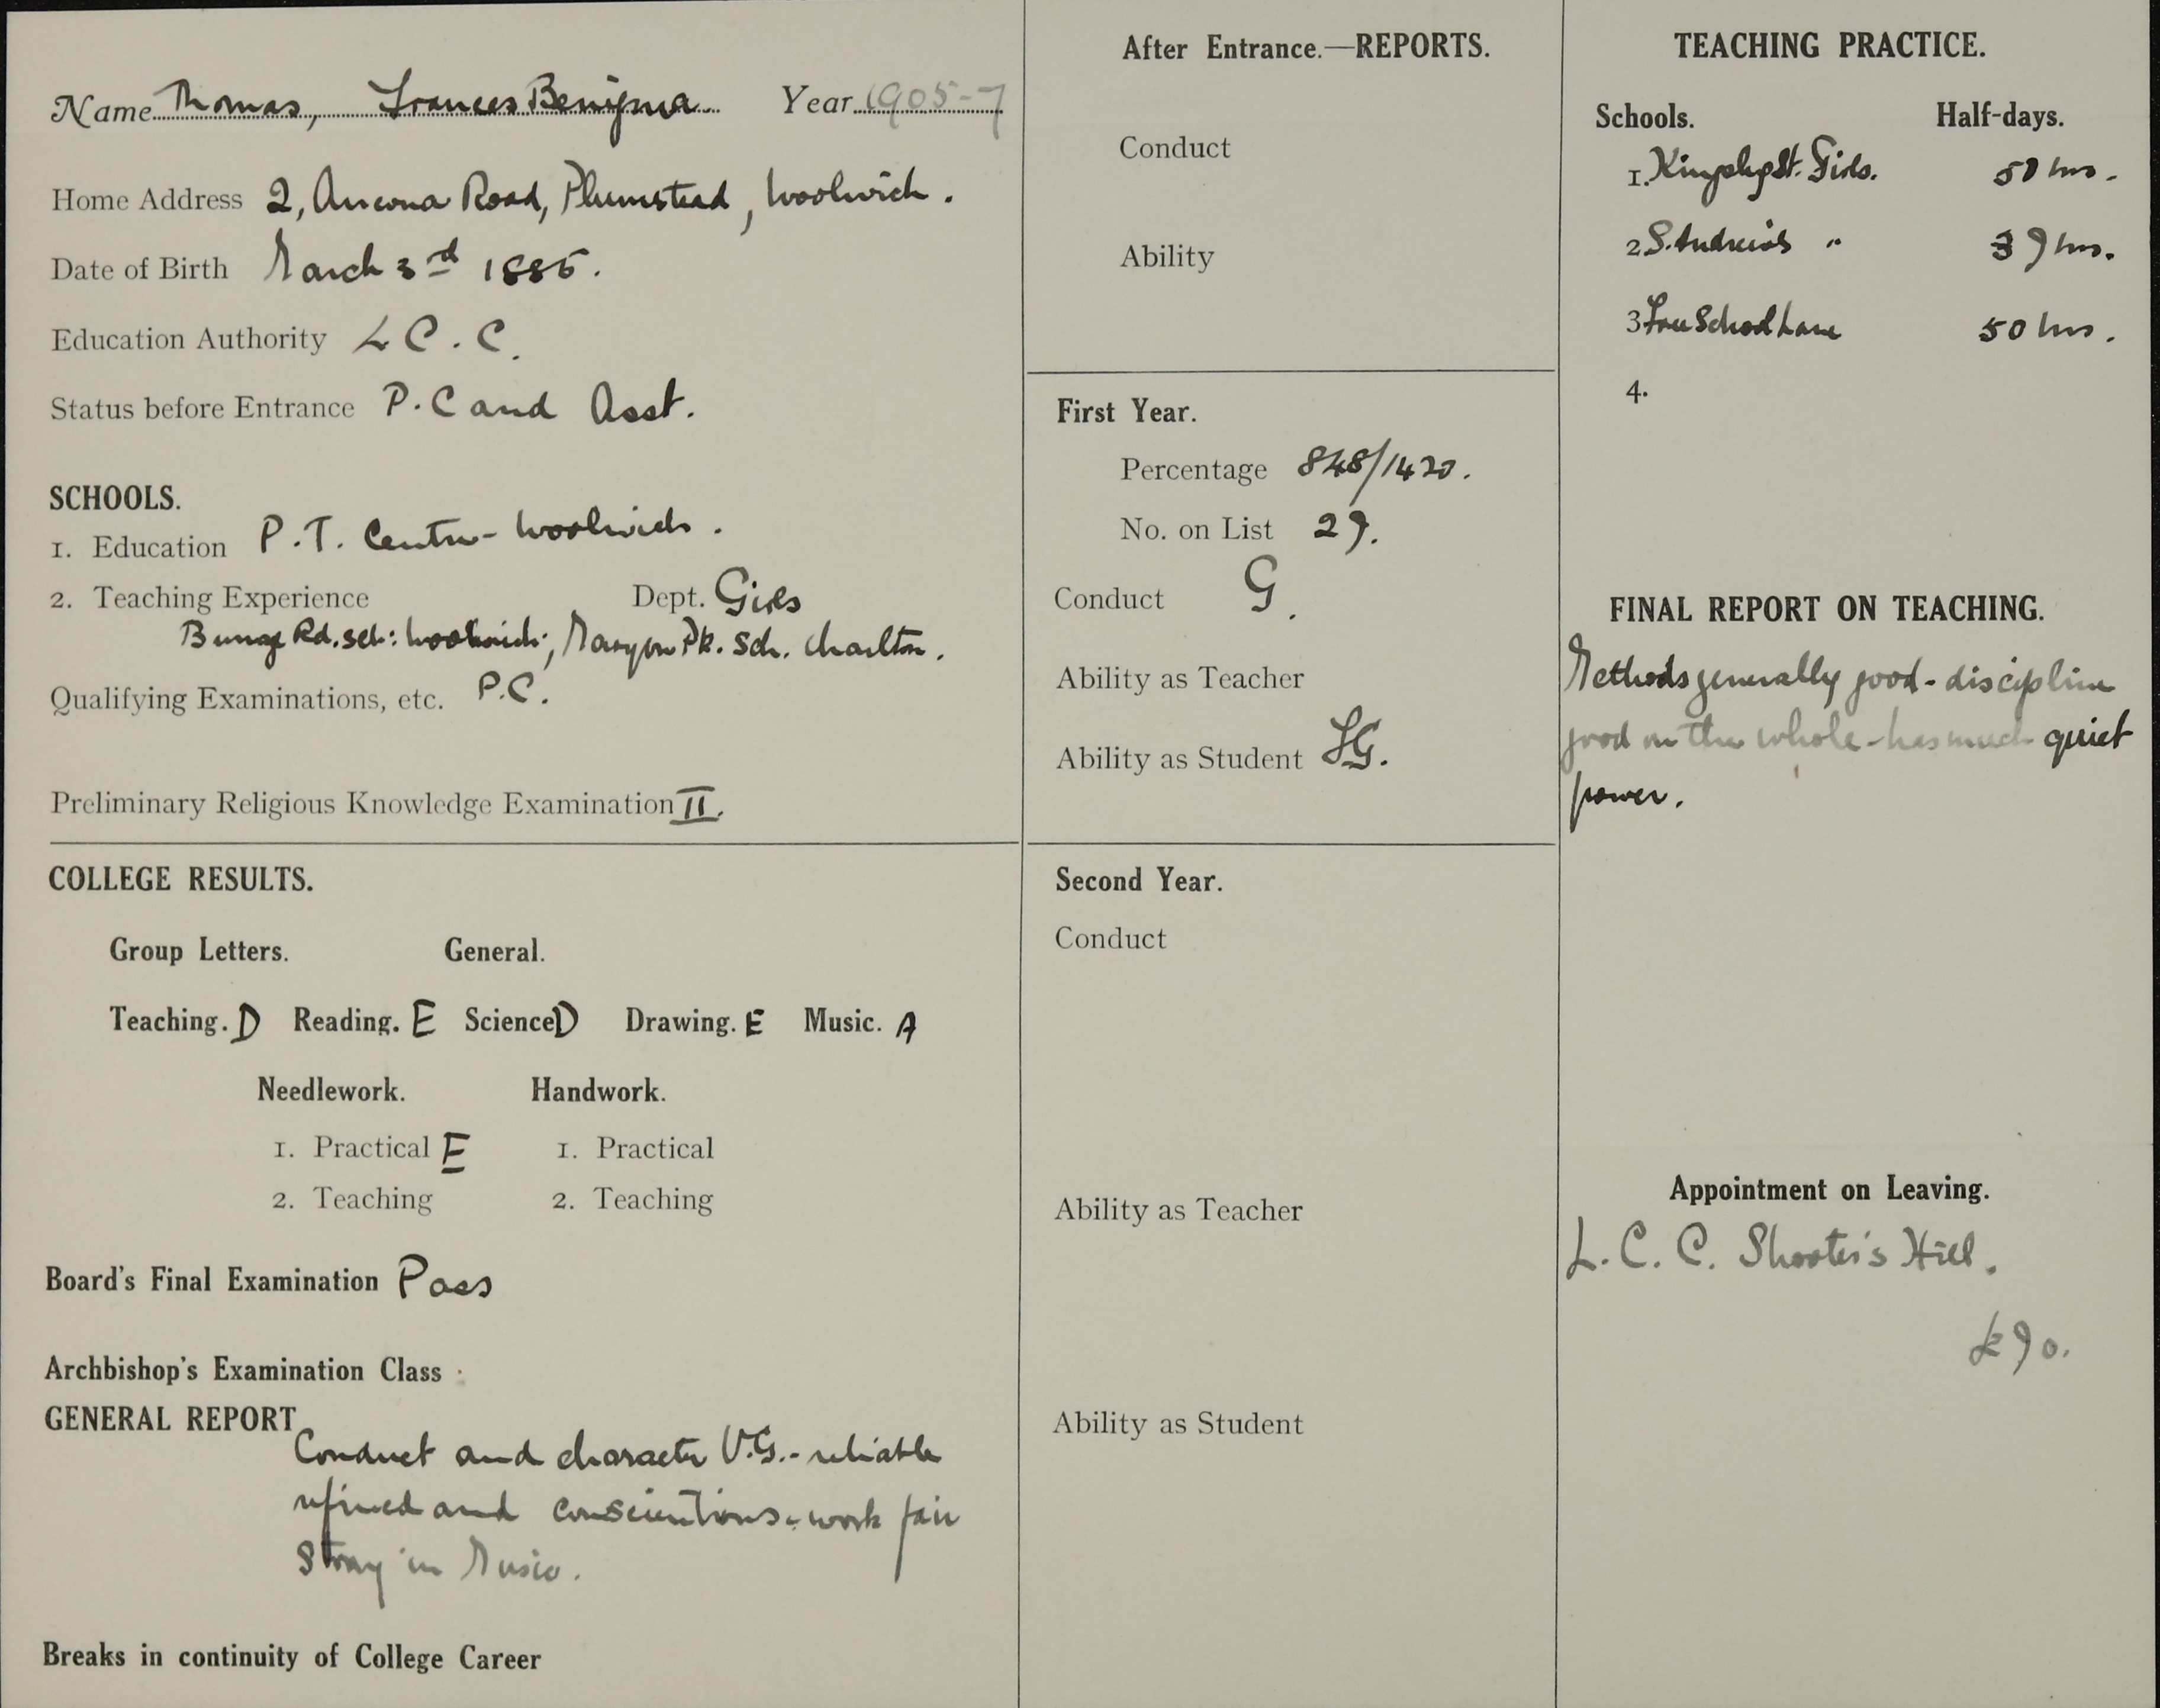 Name Thomas, Frances Benigna Year 1905-7
Home Address 2, Ancona Road, Plumstead, Woolwich.
Date of Birth March 3rd 1885.
Education Authority L.C.C.
Status before Entrance P.C and Asst.
SCHOOLS.
1. Education P.T. Centre - Woolwich.
2. Teaching Experience Dept. Girls
Rd. Sch: Woolwich; Maryon Pk. Sch. Charlton.
Qualifying Examinations, etc. P.C.
Preliminary Religious Knowledge Examination II.
COLLEGE RESULTS.
Group Letters. General.
Teaching. D Reading. E Science D Drawing. E Music. A
Needlework. Handwork.
1. Practical E 1. Practical
2. Teaching 2. Teaching
Board's Final Examination Pass
Archbishop's Examination Class
GENERAL REPORT
Conduct and character V.G. - reliable
refined and conscientious - work fair
Strong in Music.
Breaks in continuity of College Career
After Entrance.—REPORTS.
Conduct
Ability
First Year.
Percentage 848/1420.
No. on List 27.
Conduct G.
Ability as Teacher
Ability as Student FG.
Second Year.
Conduct
Ability as Teacher
Ability as Student
TEACHING PRACTICE.
Schools. Half-days.
1. St. Girls. 50 hrs.
2 S. Andrew's " 37 hrs.
3 Free School Lane 50 hrs.
4.
FINAL REPORT ON TEACHING.
Methods generally good - discipline
good on the whole - has much quiet
power.
Appointment on Leaving.
L.C.C. Shooter's Hill.
£90.